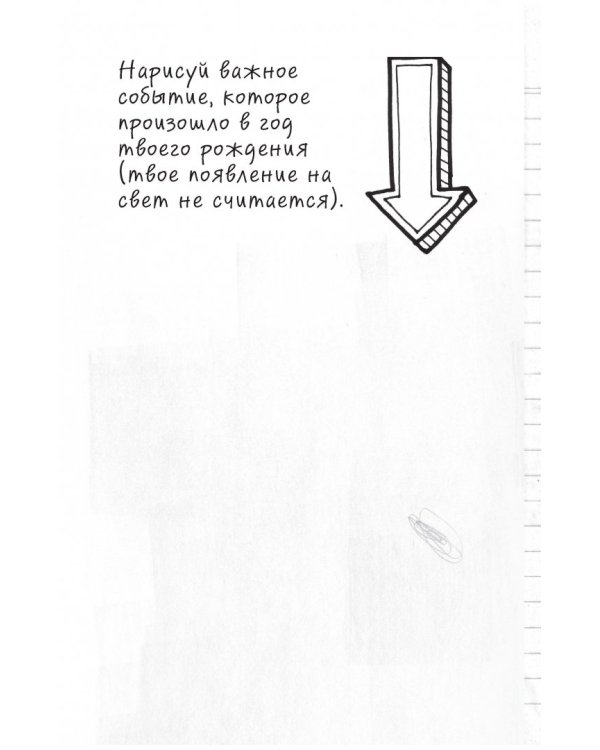 Нарисуй важное
событие, которое
произошло в год
твоего рождения
(твое появление на
свет не считается).